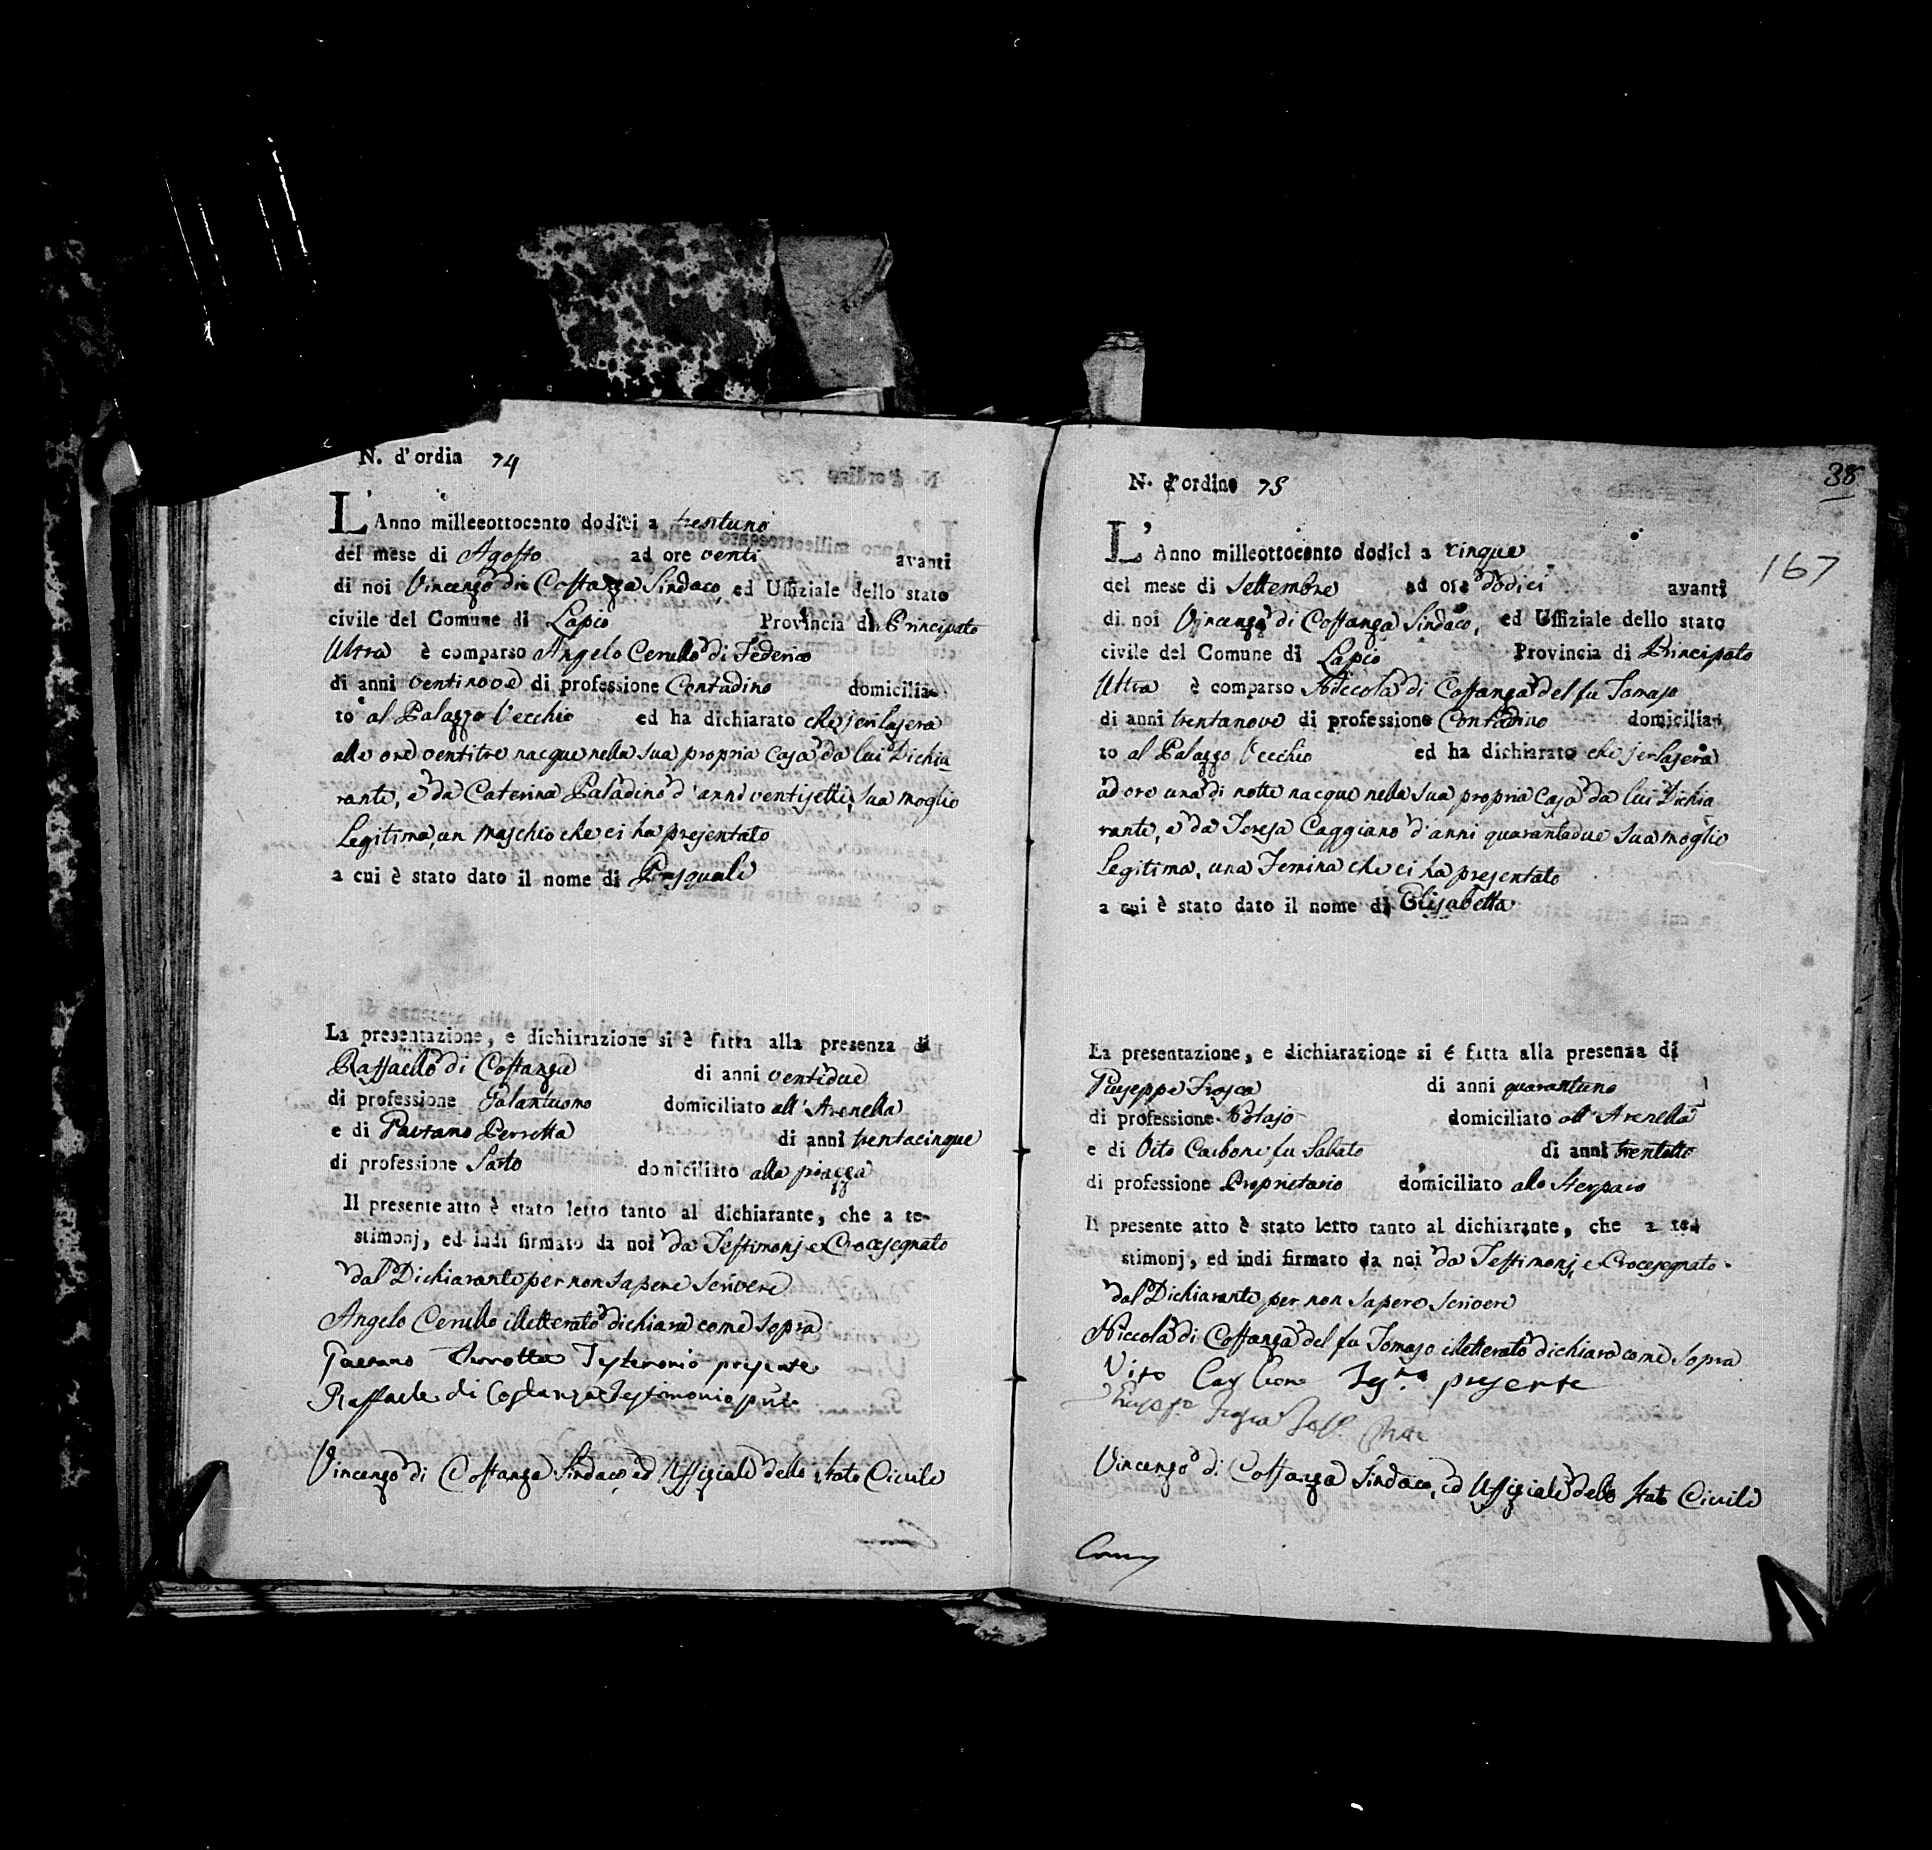 N. d'ordin 74
L'Anno milleeottocento dodici a trentuno
del mese di Agosto ad ore venti avanti
di noi Vincenzo di Costanza Sindaco, ed Uffiziale dello stato
civile del Comune di Lapio Provincia di Principato
Ultra è comparso Angelo Cerullo di Federico
di anni ventinove di professione Contadino domicilia-
to al Palazzo Vecchio ed ha dichiarato che jerilasera
alle ore ventitre nacque nella sua propria Casa da lui Dichia-
rante, e da Caterina Paladino d'anni ventisette, sua moglie
Legitima, un maschio che ci ha presentato
a cui è stato dato il nome di Pasquale
La presentazione, e dichiarazione si è fatta alla presenza di
Raffaello di Costanza di anni ventidue
di professione Galantuomo domiciliato all'Arenella
e di Gaetano Perrotta di anni trentacinque
di professione Sarto domiciliato alla piazza
Il presente atto è stato letto tanto al dichiarante, che a te-
stimonj, ed indi firmato da noi da Testimonj e Crocesegnato
dal Dichiarante per non sapere scrivere
Angelo Cerullo illetterato dichiara come sopra
Gaetano Perrotta Testimonio presente
Raffaele di Costanza Testimonio pnte
Vincenzo di Costanza Sindaco, ed Uffiziale dello stato Civile
38
167
N. d'ordine 75
L'Anno milleottocento dodici a cinque
del mese di Settembre ad ore dodici avanti
di noi Vincenzo di Costanza Sindaco, ed Uffiziale dello stato
civile del Comune di Lapio Provincia di Principato
Ultra è comparso Niccola di Costanza del fu Tomaso
di anni trentanove di professione Contadino domicilia-
to al Palazzo Vecchio ed ha dichiarato che jerlasera
ad ore una di notte nacque nella sua propria Casa da lui Dichia
rante, e da Teresa Caggiano d'anni quarantadue sua moglie
Legitima, una Femina che ci ha presentato
a cui è stato dato il nome di Elisabetta
La presentazione, e dichiarazione si é fatta alla presenza di
Giuseppe Frosca di anni quarantuno
di professione Notajo domiciliato all'Arenella
e di Vito Carbone fu Sabato di anni trentotto
di professione Proprietario domiciliato allo Sterparo
Il presente atto è stato letto tanto al dichiarante, che a te-
stimonj, ed indi firmato da noi da Testimonj e Crocesegnato
dal Dichiarante per non sapere scrivere
Niccola di Costanza del fu Tomaso illetterato dichiara come sopra
Vito Carbone presente
Vincenzo di Costanza Sindaco, ed Uffiziale dello stato Civile